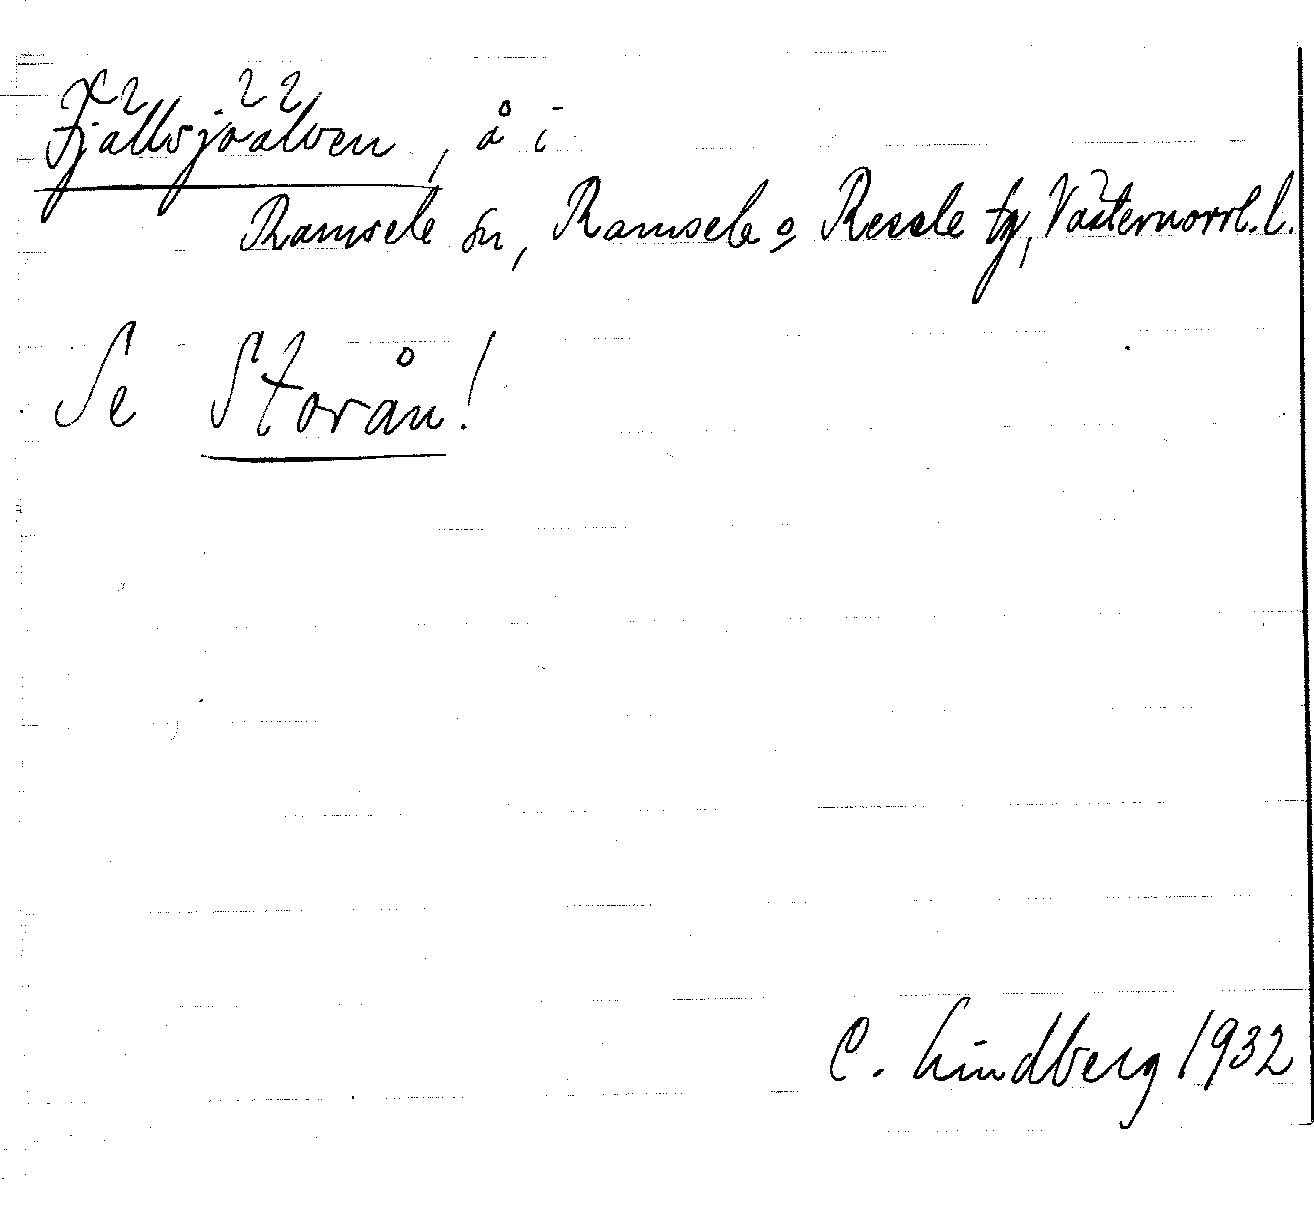 Fjällsjöälven, å i
Ramsele sn, Ramsele o Resele tg, Västernorrl. l.
Se Storån!
C. Lindberg 1932